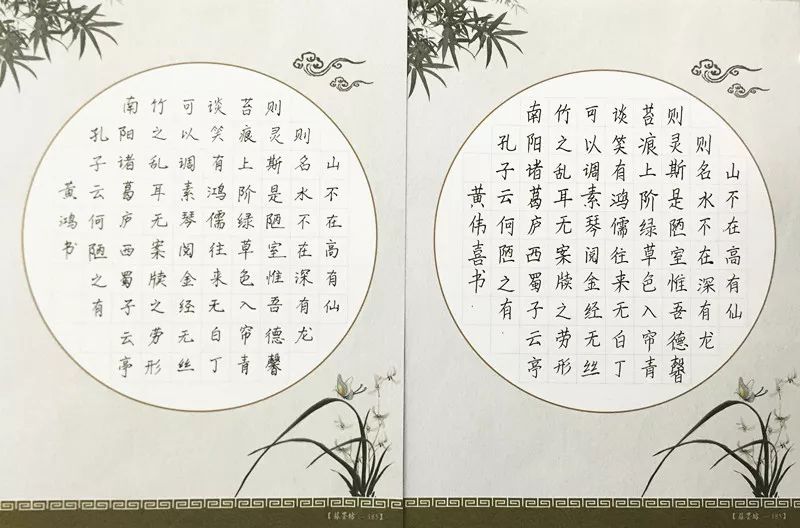 山不在高有仙
则名水不在深有龙
则灵斯是陋室惟吾德馨
苔痕上阶绿草色入帘青
谈笑有鸿儒往来无白丁
可以调素琴阅金经无丝
竹之乱耳无案牍之劳形
南阳诸葛庐西蜀子云亭
孔子云何陋之有
黄鸿书
山不在高有仙
则名水不在深有龙
则灵斯是陋室惟吾德馨
苔痕上阶绿草色入帘青
谈笑有鸿儒往来无白丁
可以调素琴阅金经无丝
竹之乱耳无案牍之劳形
南阳诸葛庐西蜀子云亭
孔子云何陋之有
黄伟喜书